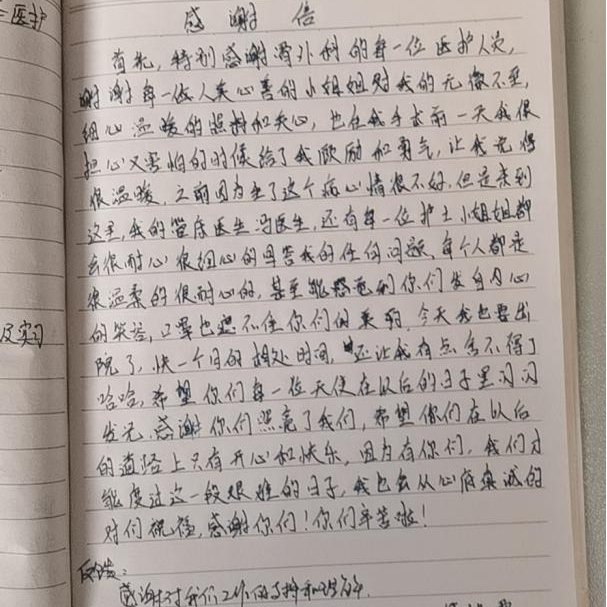 医护
感谢信
首先,特别感谢骨外科的每一位医护人员,
谢谢每一位人美心善的小姐姐对我的无微不至,
细心温暖的照料和关心,也在我手术前一天我很
担心又害怕的时候给了我鼓励和勇气,让我觉得
很温暖,之前因为生了这个病心情很不好,但是来到
这里,我的管床医生冯医生,还有每一位护士小姐姐都
会很耐心很细心的回答我的任何问题,每个人都是
很温柔的很耐心的,甚至能感觉到你们发自内心
的笑容,口罩也遮不住你们的美丽,今天我也要出
院了,快一个月的相处时间,还让我有点舍不得了
哈哈,希望你们每一位天使在以后的日子里闪闪
发光,感谢你们照亮了我们,希望你们在以后
的道路上只有开心和快乐,因为有你们,我们才
能度过这一段艰难的日子,我也会从心底真诚的
对你们祝福,感谢你们!你们辛苦啦!
及实习
反馈:
感谢对我们工作的支持和理解.